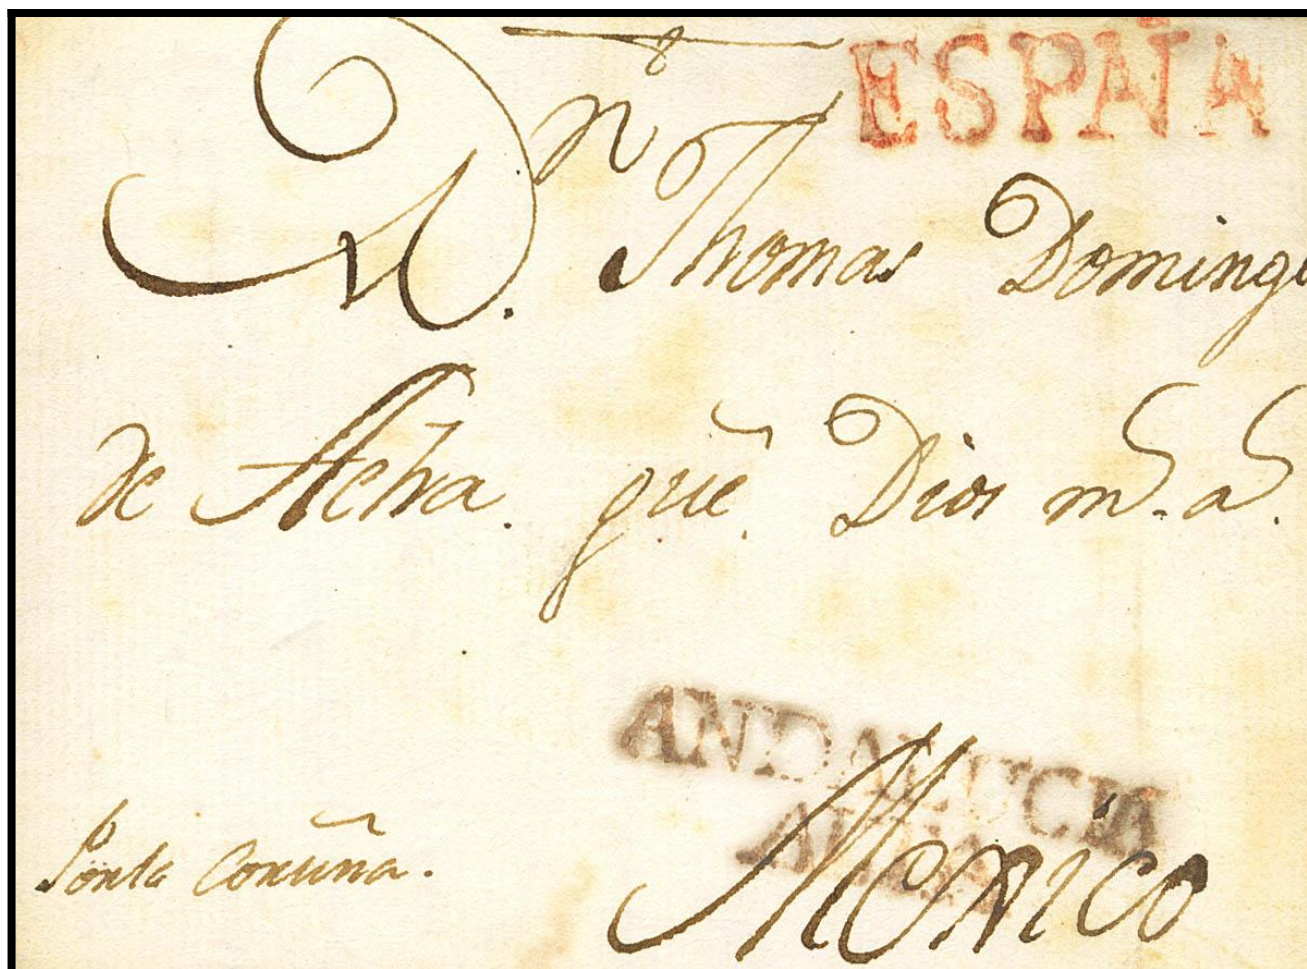 ESPÑA
Dn. Thomas Domingo
de Acha. gũe. Dios ms. as.
ANDALUCIA
ALTA
Por la Coruña.
Mexico